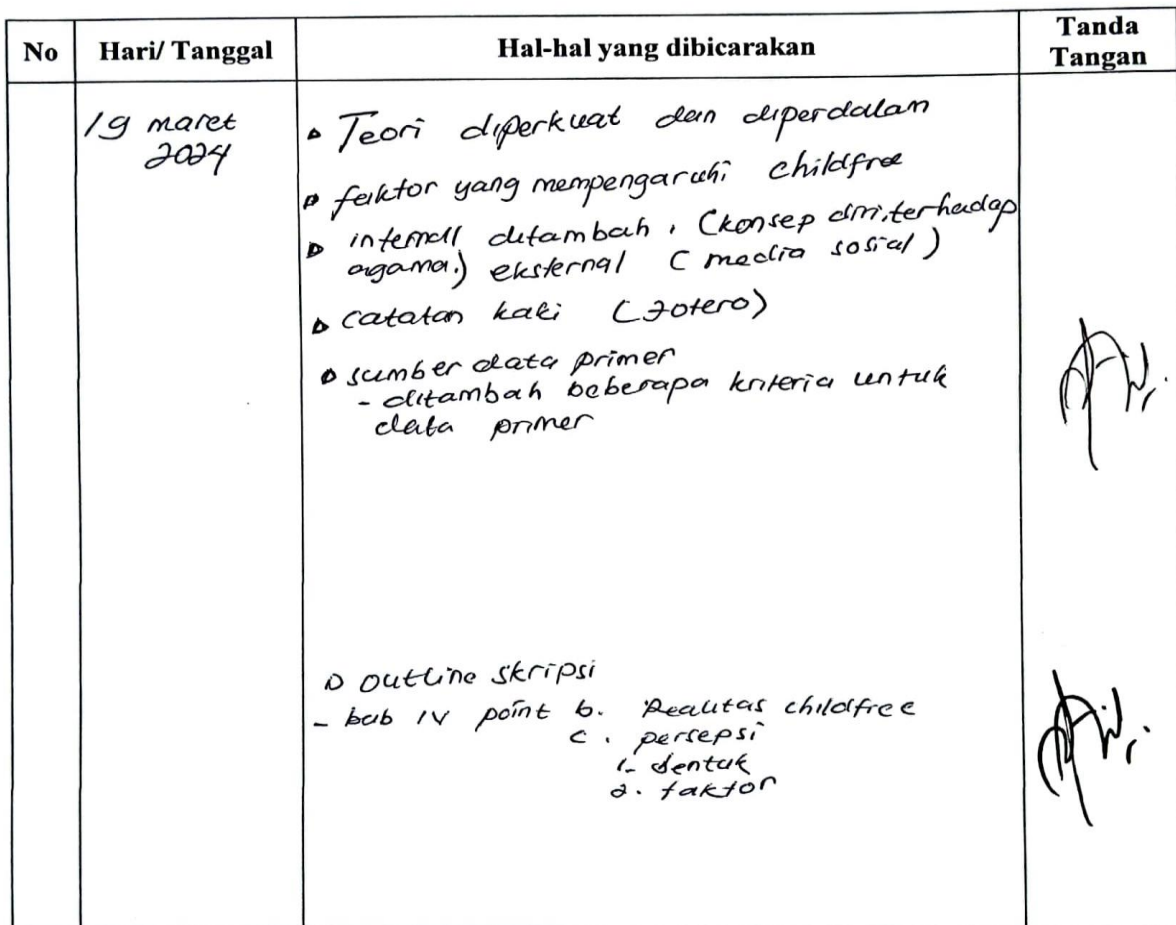 No Hari/ Tanggal Hal-hal yang dibicarakan Tanda Tangan
19 maret
2024
Teori diperkuat dan diperdalan
faktor yang mempengaruhi childfree
internall ditambah, (konsep diri, terhadap
agama.) eksternal (media sosial)
catatan kaki (Zotero)
sumber data primer
- ditambah beberapa kriteria untuk
data primer
outline skripsi
- bab IV point b. Realitas childfree
c. persepsi
1. bentuk
2. faktor